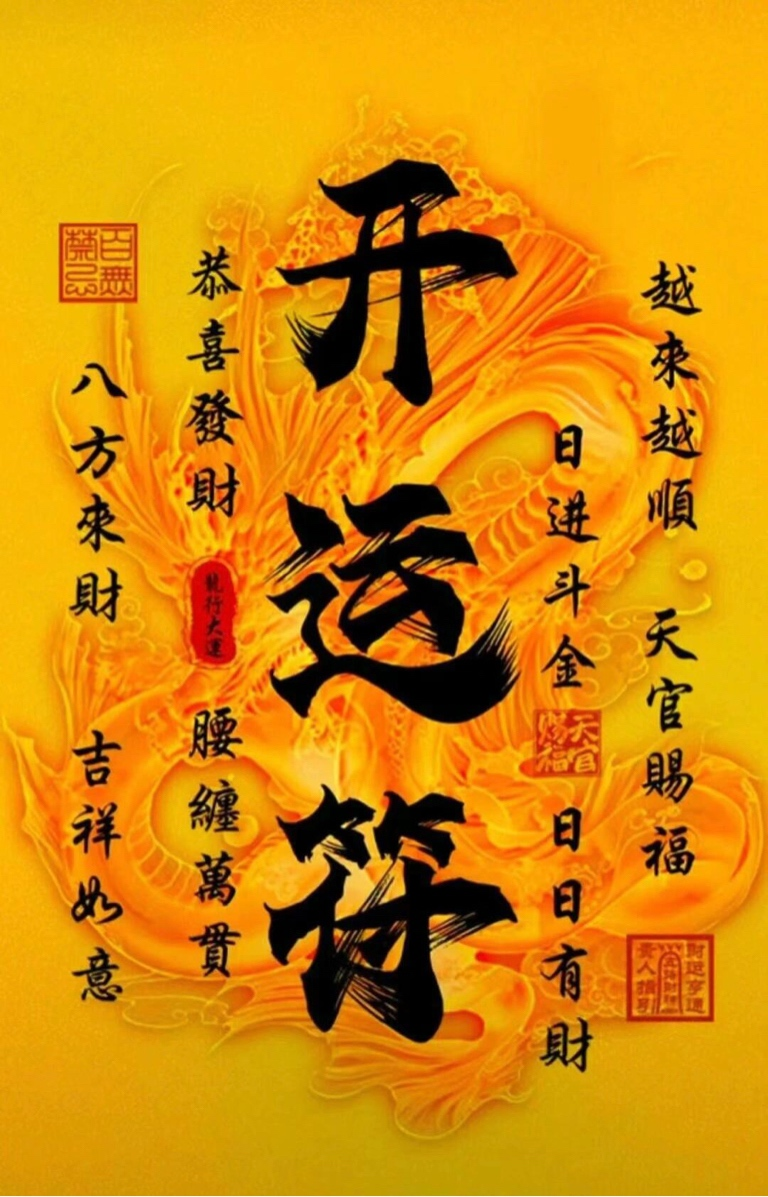 越來越順 天官賜福
日进斗金
天官
赐福
日日有財
財运亨通
貴人指引
开运符
恭喜發財
龍行大運
腰纏萬貫
百無
禁忌
八方來財 吉祥如意